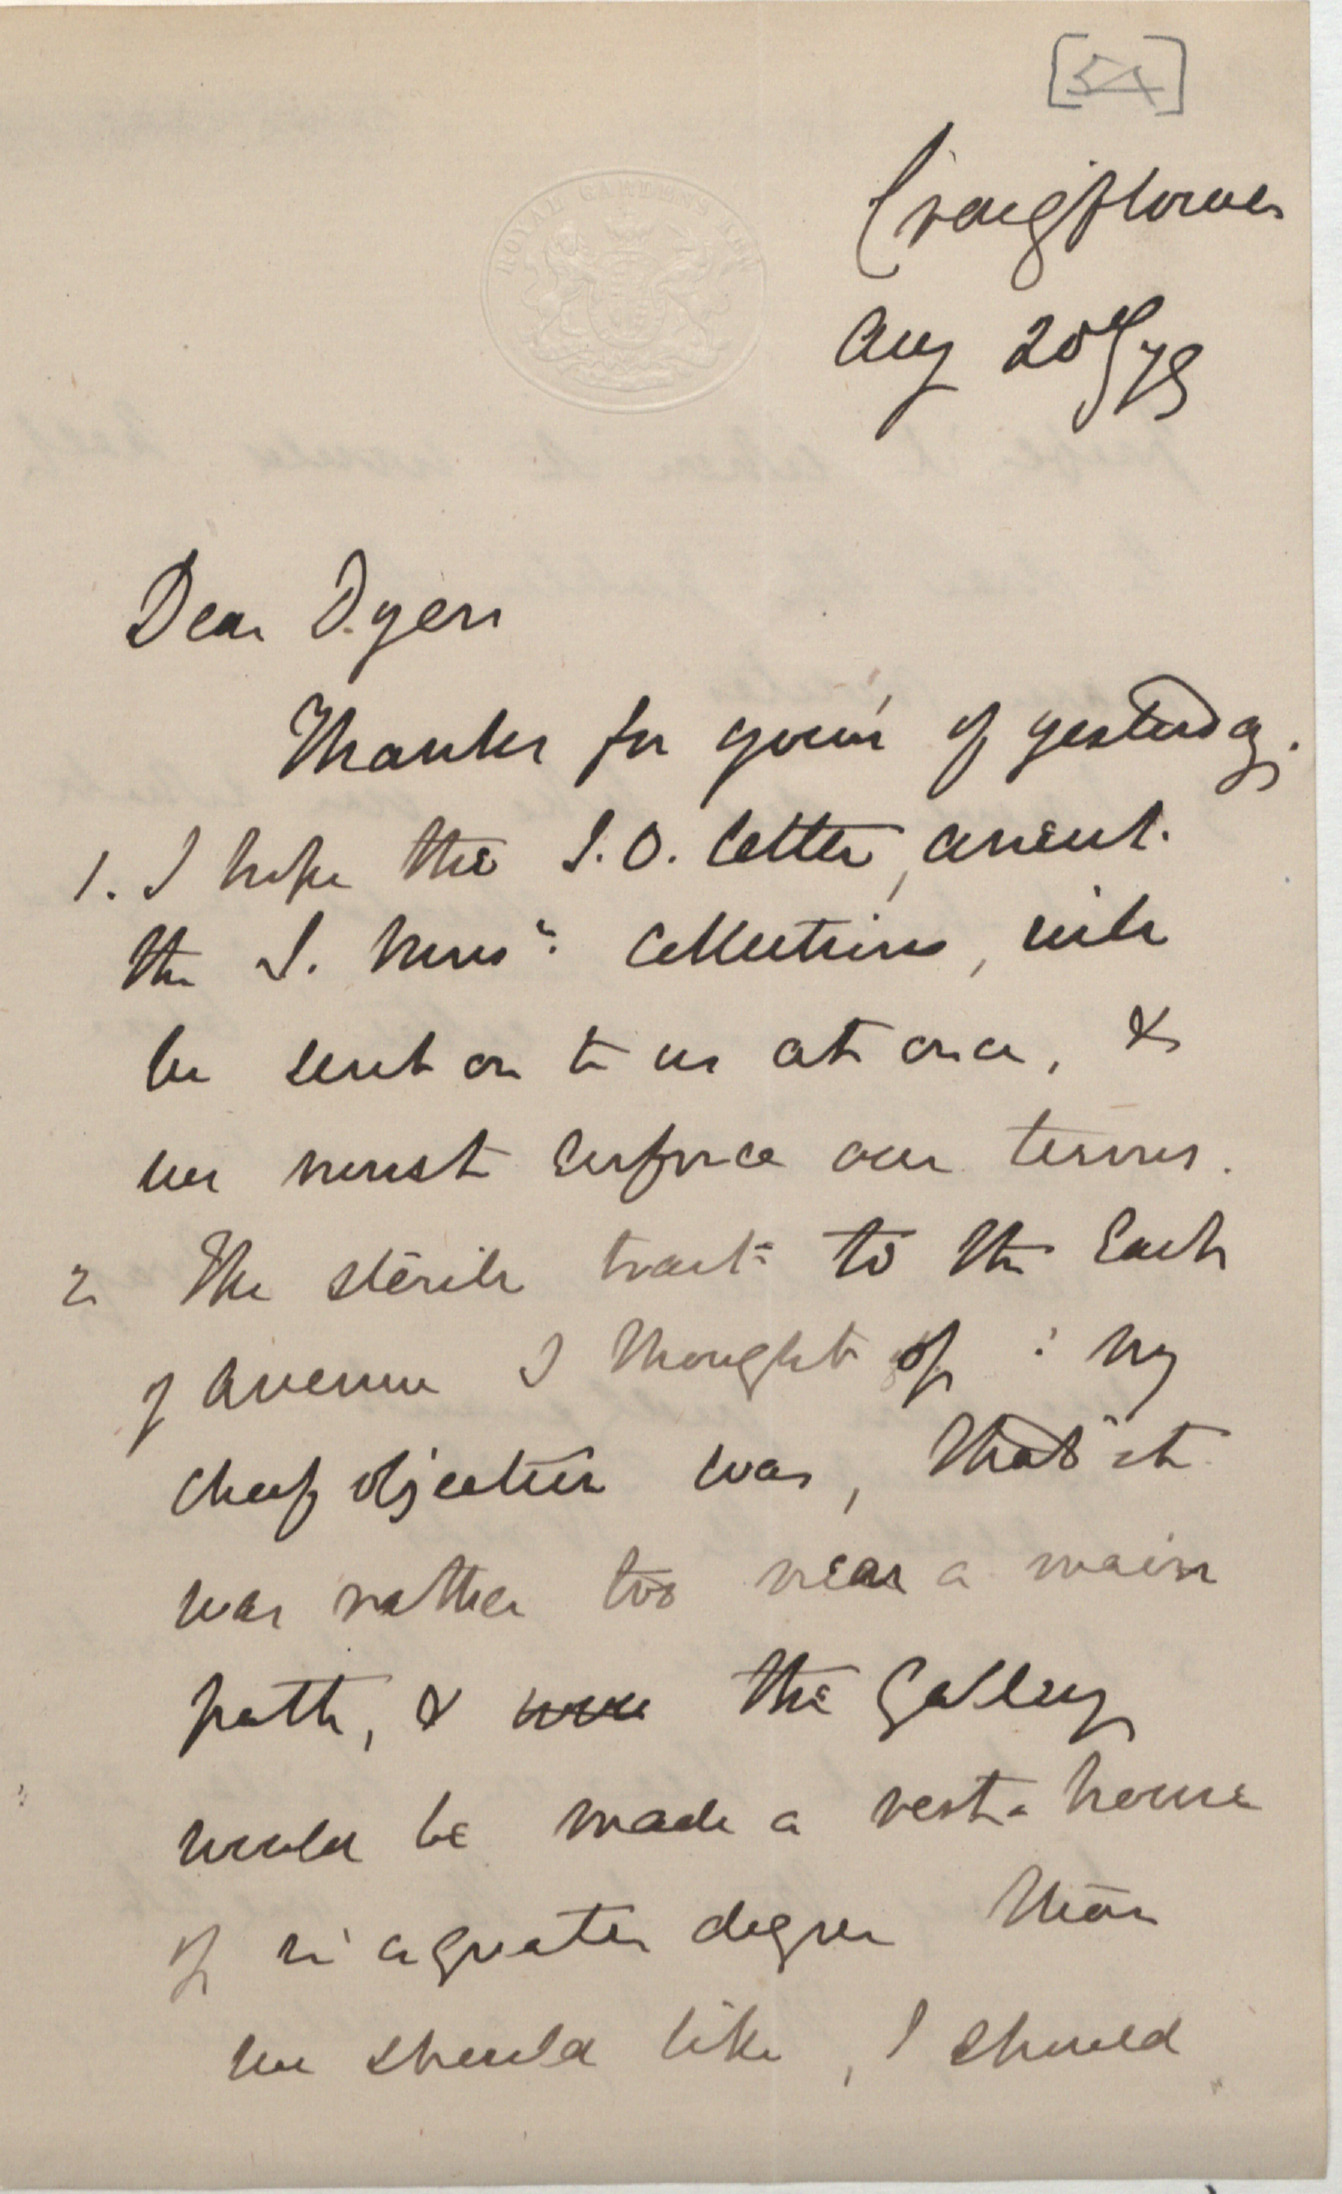 [54]
ROYAL GARDENS KEW
Craigflower
Aug 20th/79
Dear Dyer
Thanks for yours of yesterday.
1. I hope the I.O. letter, anent
the I. Mus: Collections, will
be sent on to us at once, &
we must enforce our terms.
2 The sterile tract to the East
of avenue I thought of : my
chief objection was, that it
was rather too near a main
path, & the Gallery
would be made a rest-house
of in a greater degree than
we should like, I should